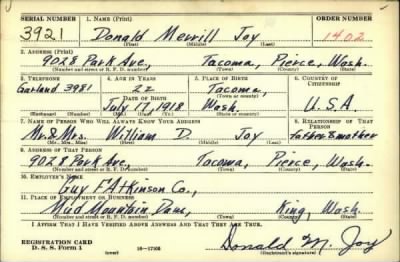 SERIAL NUMBER 1. NAME (Print) ORDER NUMBER
3921 Donald Merrill Joy 1402
(First) (Middle) (Last)
2. ADDRESS (Print)
9028 Park Ave, Tacoma, Pierce, Wash.
(Number and street or R. F. D. number) (Town) (County) (State)
3. TELEPHONE 4. AGE IN YEARS 5. PLACE OF BIRTH 6. COUNTRY OF CITIZENSHIP
Garland 3981 22 Tacoma,
DATE OF BIRTH (Town or county)
July 17, 1918 Wash. U.S.A.
(Exchange) (Number) (Mo.) (Day) (Yr.) (State or country)
7. NAME OF PERSON WHO WILL ALWAYS KNOW YOUR ADDRESS 8. RELATIONSHIP OF THAT PERSON
Mr. & Mrs. William D. Joy father & mother
(Mr., Mrs., Miss) (First) (Middle) (Last)
9. ADDRESS OF THAT PERSON
9028 Park Ave, Tacoma, Pierce, Wash.
(Number and street or R. F. D. number) (Town) (County) (State)
10. EMPLOYER'S NAME
Guy F Atkinson Co.,
11. PLACE OF EMPLOYMENT OR BUSINESS
Mud Mountain Dam, King, Wash.
(Number and street or R. F. D. number) (Town) (County) (State)
I AFFIRM THAT I HAVE VERIFIED ABOVE ANSWERS AND THAT THEY ARE TRUE.
REGISTRATION CARD
D. S. S. Form 1 (over) 16—17105 Donald M. Joy
(Registrant's signature)